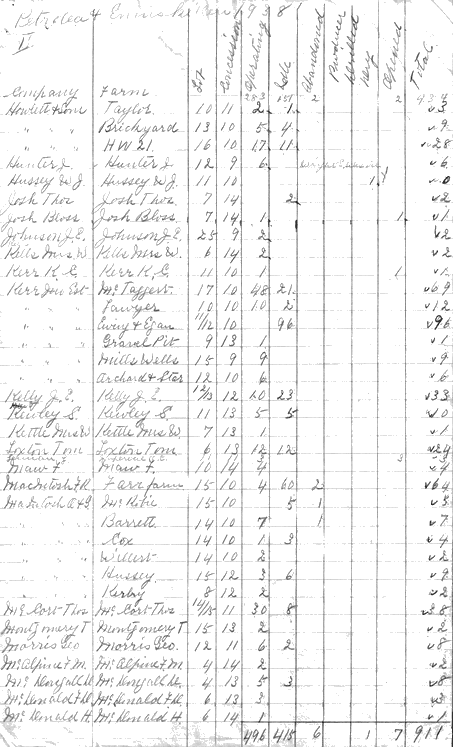 Petrolea & Enniskillen 1938
II
Company Farm Lot Concession Operating Idle Abandoned Producer Drilled Dry Opened Total
253 151 2 2 434
Howlett & Son Taylor 10 11 2 1 3
" " " Brickyard 13 10 5 4 9
" " " H W 21 16 10 17 11 28
Hunter J Hunter J 12 9 6 6
Hussey W J Hussey W J. 11 10 1 0
Josh Thos Josh Thos. 7 14 2 2
Josh Bloss Josh Bloss. 7 14 1 1 1
Johnson J. E. Johnson J. E. 25 9 2 2
Kells Mrs W Kells Mrs W. 6 14 2 2
Kerr K. C Kerr K. C 11 10 1 1 1
Kerr Jno Est McTaggert 17 10 48 21 69
" " " Lawyer 10 10 10 2 12
" " " Ewing & Egan 11/12 10 96 96
" " " Gravel Pit 9 13 1 1
" " " Mills Wells 15 9 9 9
" " " Archard & Star 12 10 6 6
Kelly J. E. Kelly J. E. 12/13 12 10 23 33
Kewley S. Kewley S. 11 13 5 5 10
Kettle Mrs W. Kettle Mrs W. 7 13 1 1
Loxton Tom Loxton Tom 6 13 12 12 24
Maw F. Maw F. 10 14 4 4
MacIntosh F. R. Farr farm 15 10 4 60 2 64
MacIntosh A & G McRobie 15 10 5 1 5
" " " Barrett 14 10 7 1 7
" " " Cox 14 10 1 3 4
" " " Willert 14 10 2 2
" " " Hussey 15 12 3 6 9
" " " Kerby 8 12 2 2
McCort Thos McCort Thos 14/15 11 30 8 38
Montgomery T Montgomery T. 15 13 2 2
Morris Geo Morris Geo. 12 11 6 2 8
McAlpine F. M. McAlpine F. M. 4 14 2 2
4 13 5 3 8
McDonald F. D. McDonald F. D. 6 13 3 3
McDonald H. McDonald H 6 14 1 1
496 415 6 1 7 911